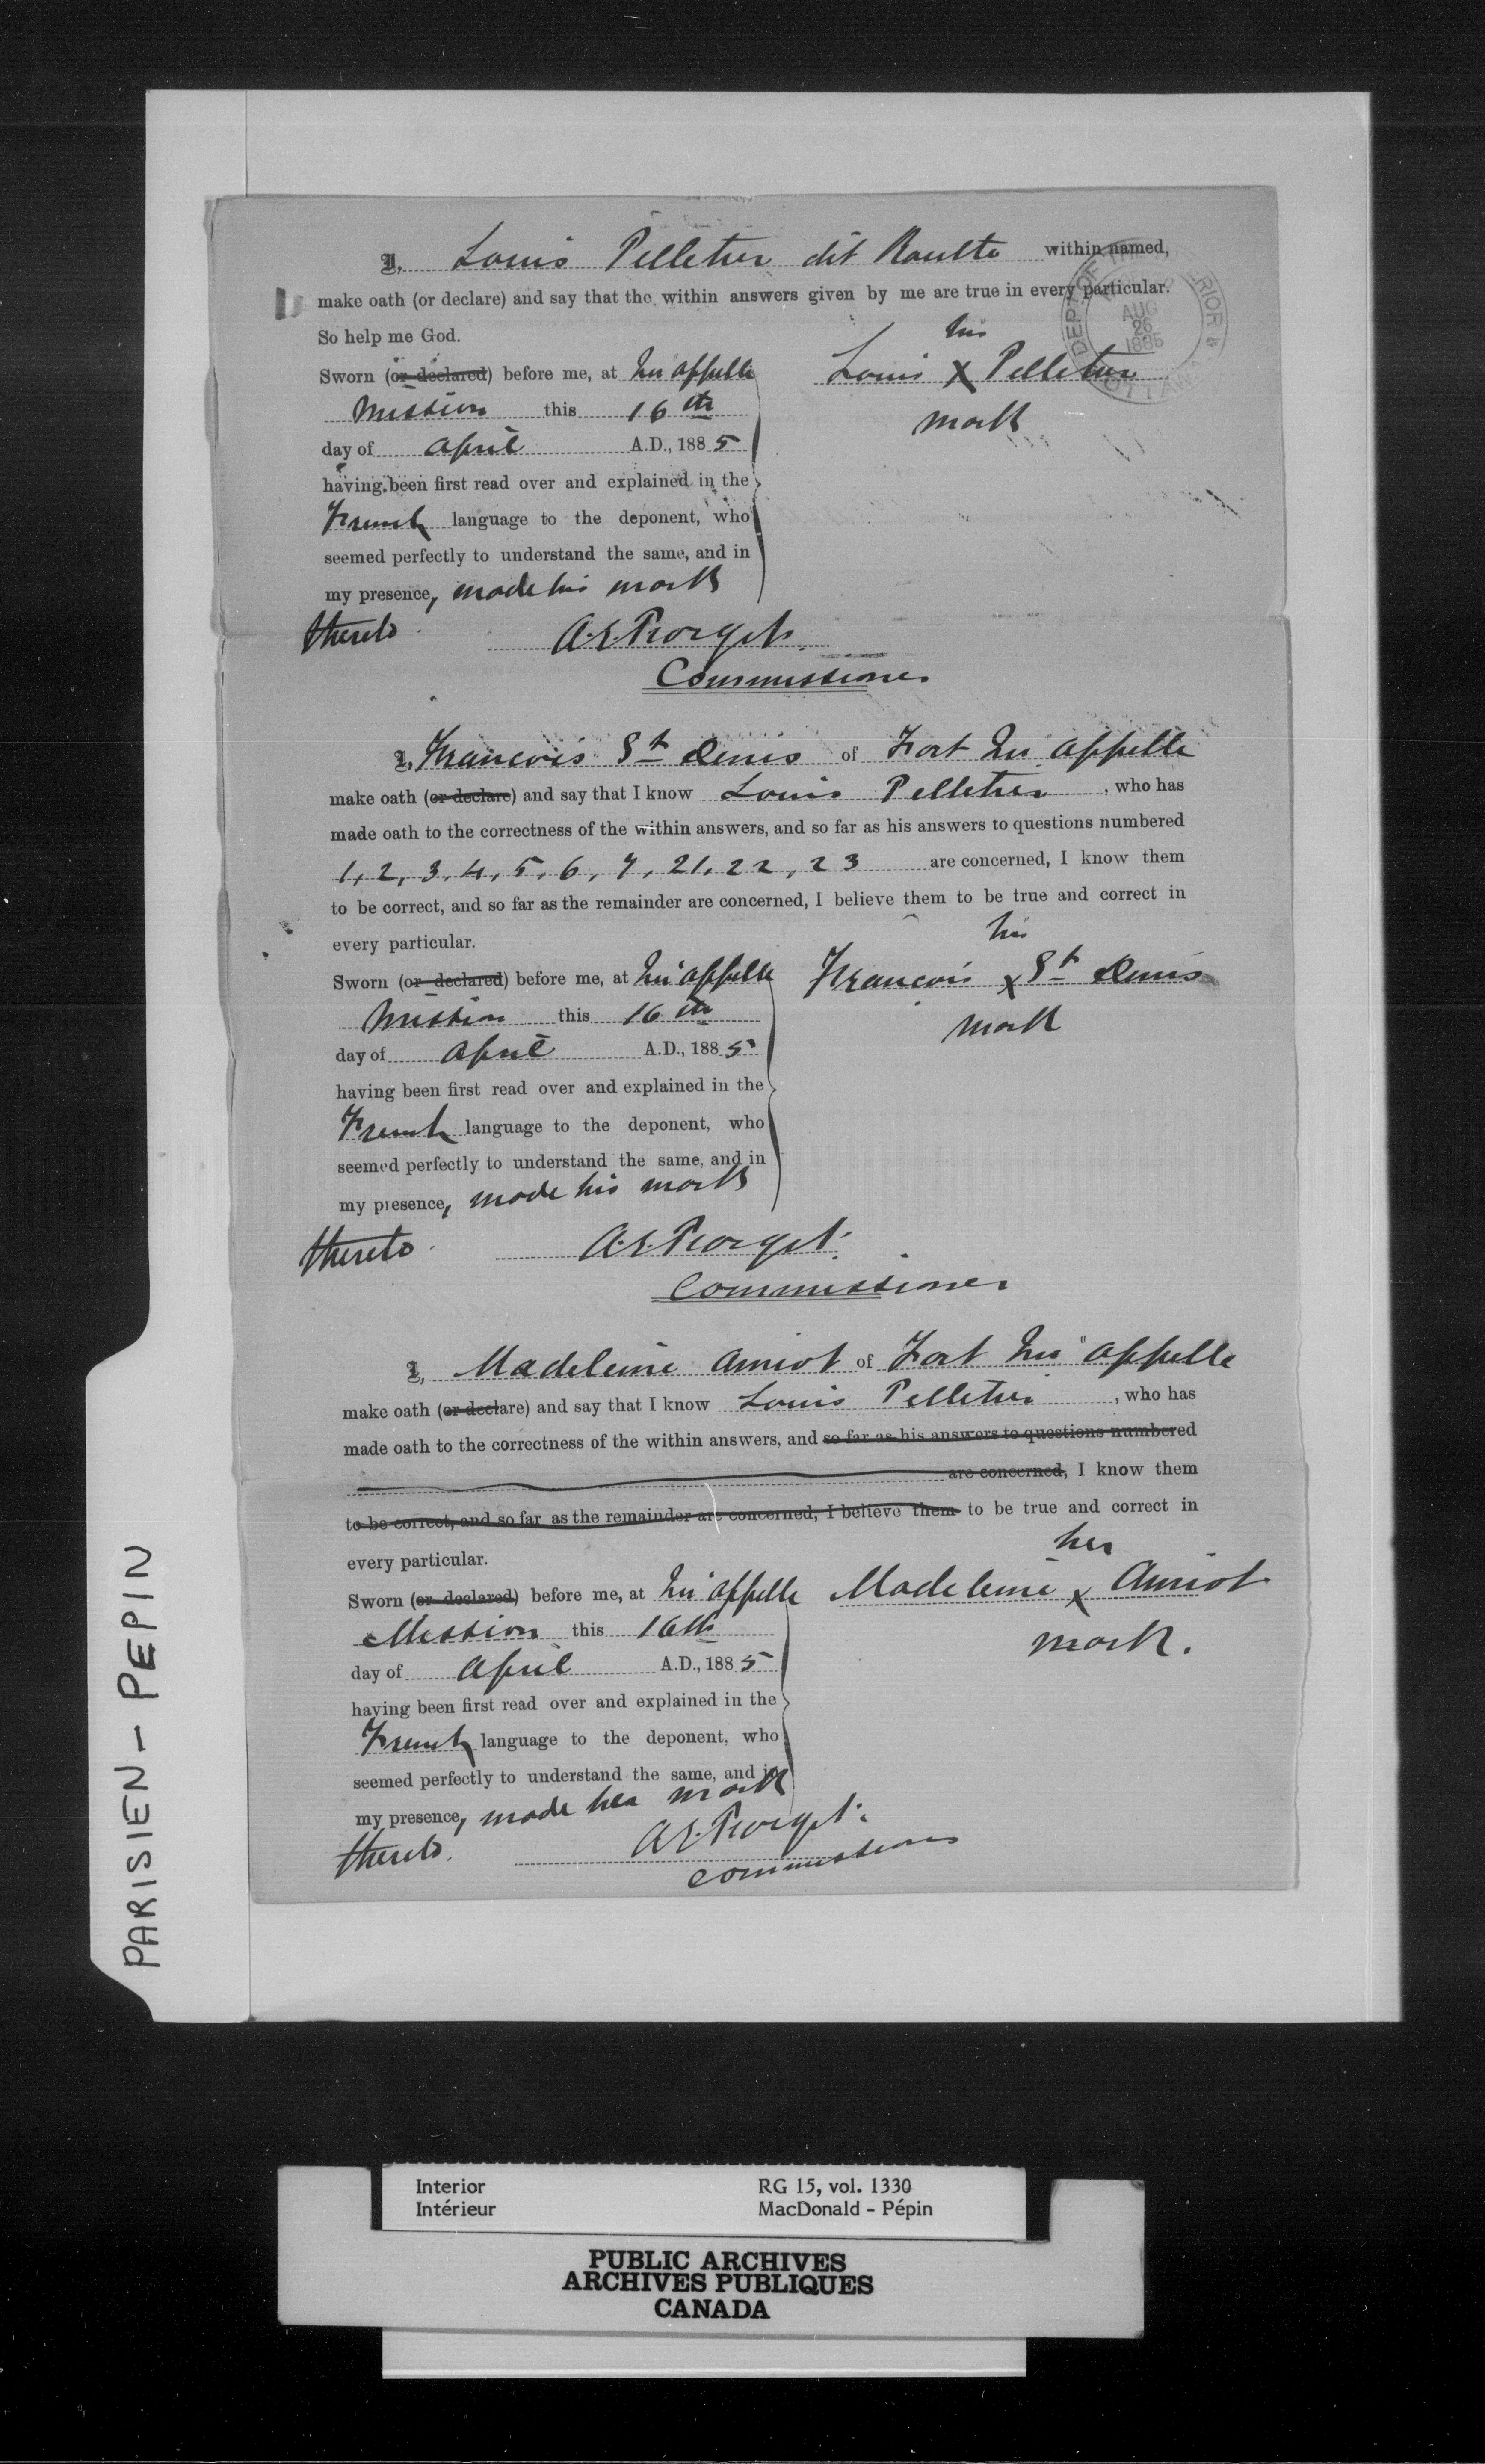 I, Louis Pelletier dit Roulte within named,
make oath (or declare) and say that the within answers given by me are true in every particular.
So help me God.
DEPT OF INTERIOR
AUG
26
1885
OTTAWA
Sworn (or declared) before me, at Qu'appelle
Mission this 16th
day of April A.D., 1885
having been first read over and explained in the
French language to the deponent, who
seemed perfectly to understand the same, and in
my presence, made his mark
thereto.
his
Louis X Pelletier
mark
A.E. Forget.
Commissioner
I, Francois St Denis of Fort Qu'appelle
make oath (or declare) and say that I know Louis Pelletier, who has
made oath to the correctness of the within answers, and so far as his answers to questions numbered
1, 2, 3, 4, 5, 6, 7, 21, 22, 23 are concerned, I know them
to be correct, and so far as the remainder are concerned, I believe them to be true and correct in
every particular.
Sworn (or declared) before me, at Qu'appelle
Mission this 16th
day of April A.D., 1885
having been first read over and explained in the
French language to the deponent, who
seemed perfectly to understand the same, and in
my presence, made his mark
thereto.
his
Francois x St Denis
mark
A.E. Forget.
Commissioner
I, Madeleine Amiot of Fort Qu'appelle
make oath (or declare) and say that I know Louis Pelletier, who has
made oath to the correctness of the within answers, and so far as his answers to questions numbered
are concerned, I know them
to be correct, and so far as the remainder are concerned, I believe them to be true and correct in
every particular.
Sworn (or declared) before me, at Qu'appelle
Mission this 16th
day of April A.D., 1885
having been first read over and explained in the
French language to the deponent, who
seemed perfectly to understand the same, and in
my presence, made her mark
thereto.
her
Madeleine x Amiot
mark.
A.E. Forget.
Commissioner
PARISIEN - PEPIN
Interior RG 15, vol. 1330
Intérieur MacDonald - Pépin
PUBLIC ARCHIVES
ARCHIVES PUBLIQUES
CANADA